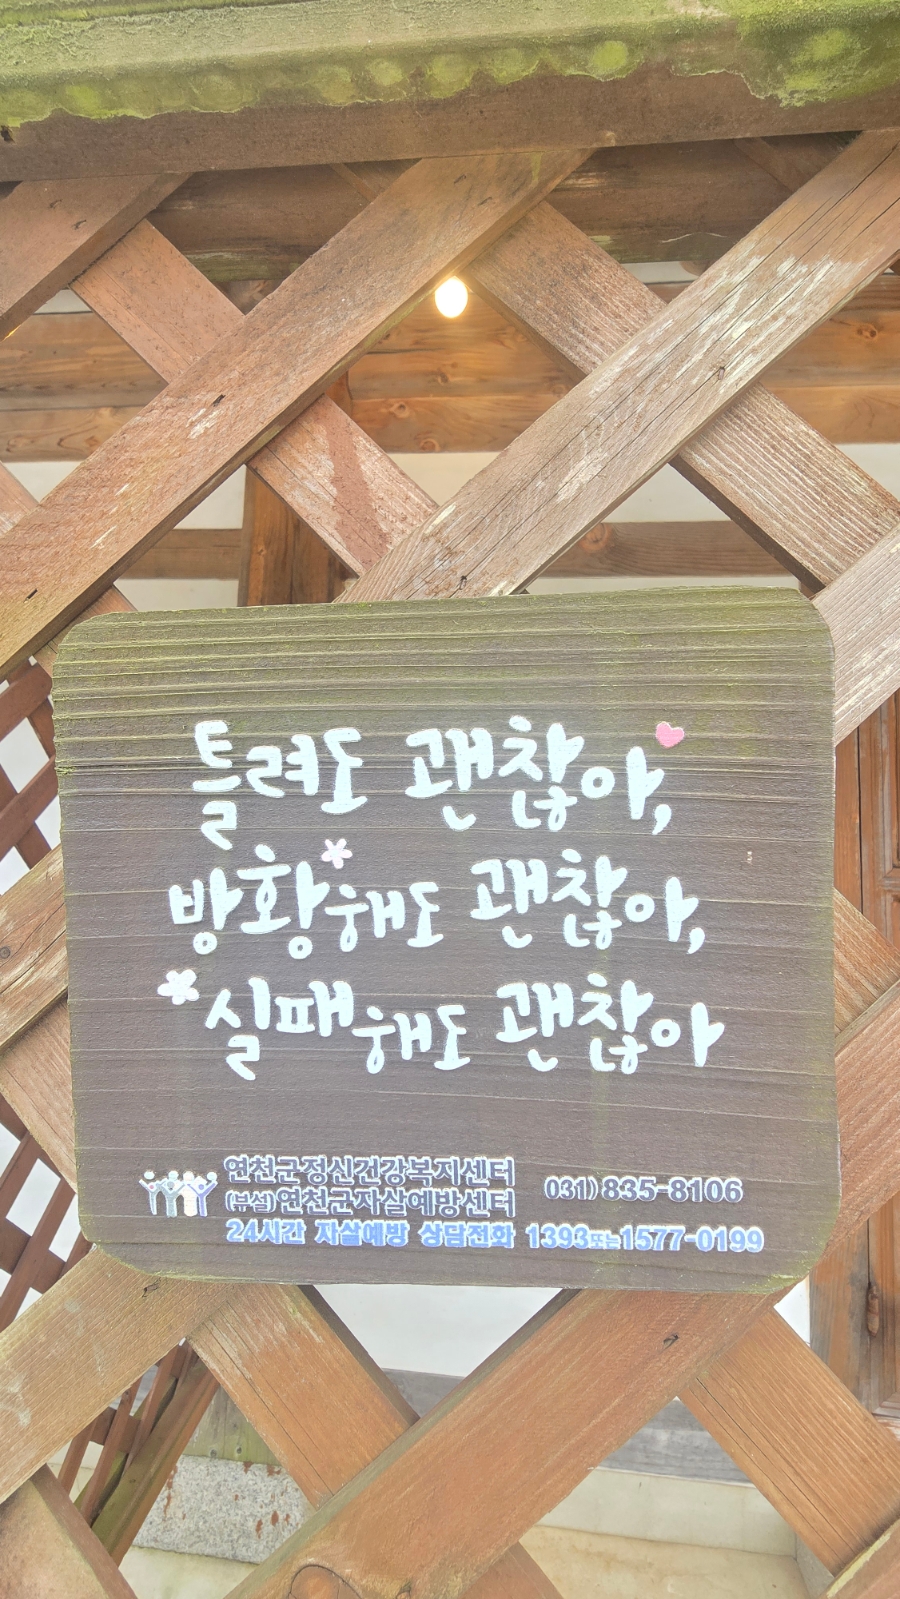 틀려도 괜찮아,
방황해도 괜찮아,
실패해도 괜찮아
연천군정신건강복지센터
(부설)연천군자살예방센터
031)835-8106
24시간 자살예방 상담전화 1393또는1577-0199